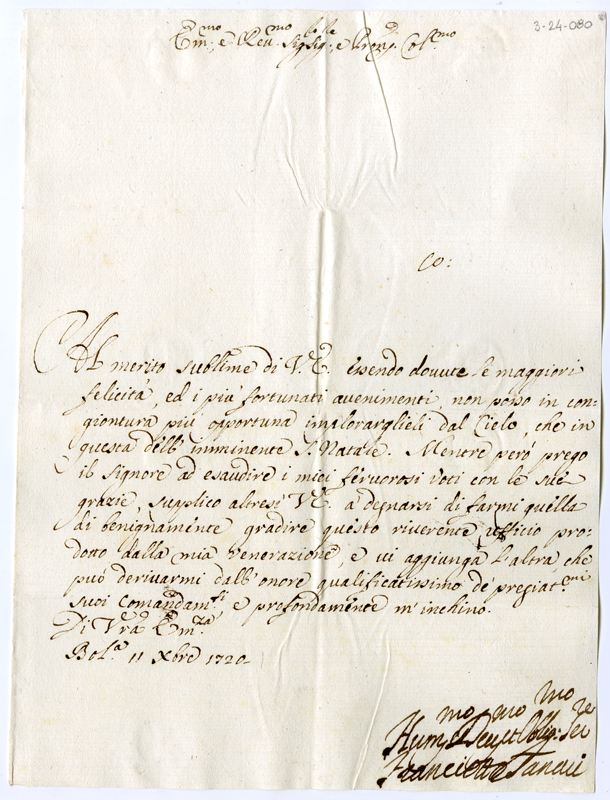 3-24-080
Em.mo e Reu.mo Sig.r Sig.re e Pron. Col.mo
Co:
Al merito sublime di V.E. essendo douute le maggiori
felicità, ed i più fortunati auenimenti non posso in con=
giontura più opportuna implorarglieli dal Cielo, che in
questa dell' imminente S. Natale. Mentre però prego
il Signore ad esaudire i miei feruorosi voti con le sue
grazie, supplico altresì V.E. a degnarsi di farmi quella
di benignamente gradire questo riuerente ufficio pro-
dotto dalla mia venerazione, e vi aggiunga l'altra che
può deriuarmi dall' onore qualificatissimo de' pregiat.mi
suoi comandam.ti, e profondamente m' inchino.
Di Vra Em.za
Bol.a 11 Xbre 1720
Hum.mo Deu.mo et Obbl.mo Se.re
Francesco Tanari